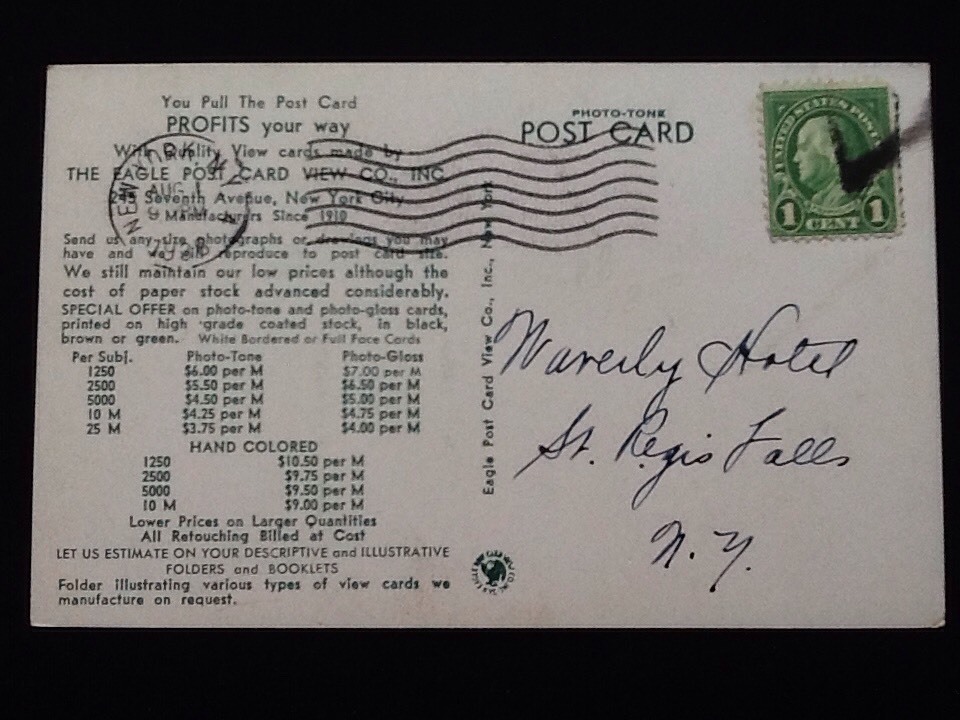 You Pull The Post Card
PROFITS your way
With Quality View cards made by
THE EAGLE POST CARD VIEW CO., INC.
245 Seventh Avenue, New York City
Manufacturers Since 1910
Send us any size photographs or drawings you may
have and we will reproduce to post card size.
We still maintain our low prices although the
cost of paper stock advanced considerably.
SPECIAL OFFER on photo-tone and photo-gloss cards,
printed on high grade coated stock, in black,
brown or green. White Bordered or Full Face Cards
Per Subj. Photo-Tone Photo-Gloss
1250 $6.00 per M $7.00 per M
2500 $5.50 per M $6.50 per M
5000 $4.50 per M $5.00 per M
10 M $4.25 per M $4.75 per M
25 M $3.75 per M $4.00 per M
HAND COLORED
1250 $10.50 per M
2500 $9.75 per M
5000 $9.50 per M
10 M $9.00 per M
Lower Prices on Larger Quantities
All Retouching Billed at Cost
LET US ESTIMATE ON YOUR DESCRIPTIVE and ILLUSTRATIVE
FOLDERS and BOOKLETS
Folder illustrating various types of view cards we
manufacture on request.
NEW YORK, N.Y.
AUG 1
Eagle Post Card View Co., Inc., New York
PHOTO-TONE
POST CARD
UNITED STATES POSTAGE
1 CENT 1
Waverly Hotel
St. Regis Falls
N. Y.